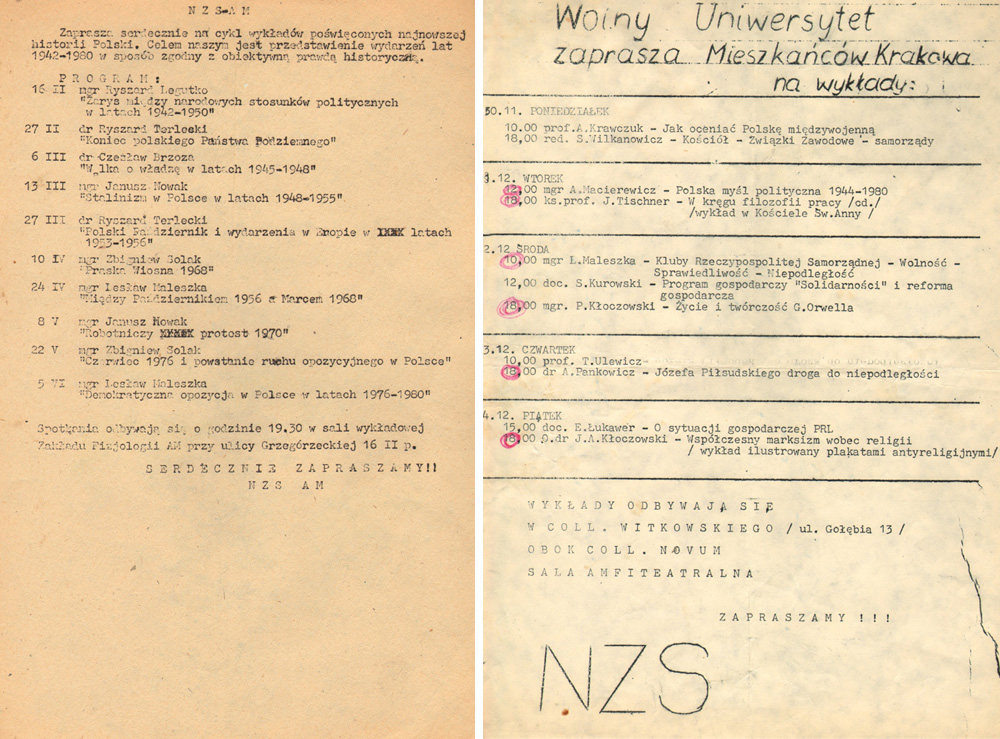 N Z S-A M
Zaprasza serdecznie na cykl wykładów poświęconych najnowszej
historii Polski. Celem naszym jest przedstawienie wydarzeń lat
1942-1980 w sposób zgodny z obiektywną prawdą historyczną.
P R O G R A M :
16 II mgr Ryszard Legutko
"Zarys między narodowych stosunków politycznych
w latach 1942-1950"
27 II dr Ryszard Terlecki
"Koniec polskiego Państwa Podziemnego"
6 III dr Czesław Brzoza
"Walka o władzę w latach 1945-1948"
13 III mgr Janusz Nowak
"Stalinizm w Polsce w latach 1948-1955"
27 III dr Ryszard Terlecki
"Polski Październik i wydarzenia w Eropie w latach
1953-1956"
10 IV mgr Zbigniew Solak
"Praska Wiosna 1968"
24 IV mgr Lesław Maleszka
"Między Październikiem 1956 a Marcem 1968"
8 V mgr Janusz Nowak
"Robotniczy protest 1970"
22 V mgr Zbigniew Solak
"Czerwiec 1976 i powstanie ruchu opozycyjnego w Polsce"
5 VI mgr Lesław Maleszka
"Demokratyczna opozycja w Polsce w latach 1976-1980"
Spotkania odbywają się o godzinie 19.30 w sali wykładowej
Zakładu Fizjologii AM przy ulicy Grzegórzeckiej 16 II p.
S E R D E C Z N I E Z A P R A S Z A M Y!!
N Z S A M
Wolny Uniwersytet
zaprasza Mieszkańców Krakowa
na wykłady:
30.11. PONIEDZIAŁEK
10.00 prof.A.Krawczuk - Jak oceniać Polskę międzywojenną
18,00 red. S.Wilkanowicz - Kościół - Związki Zawodowe - samorządy
1.12. WTOREK
12,00 mgr A.Macierewicz - Polska myśl polityczna 1944-1980
18,00 ks.prof. J.Tischner - W kręgu filozofii pracy /cd./
/wykład w Kościele Św.Anny /
2.12 ŚRODA
10,00 mgr L.Maleszka - Kluby Rzeczypospolitej Samorządnej - Wolność -
Sprawiedliwość - Niepodległość
12,00 doc. S.Kurowski - Program gospodarczy "Solidarności" i reforma
gospodarcza
18,00 mgr. P.Kłoczowski - Życie i twórczość G.Orwella
3.12. CZWARTEK
10,00 prof. T.Ulewicz-
18,00 dr A.Pankowicz - Józefa Piłsudskiego droga do niepodległości
4.12. PIĄTEK
15,00 doc. E.Łukawer - O sytuacji gospodarczej PRL
18,00 O.dr J.A.Kłoczowski - Współczesny marksizm wobec religii
/ wykład ilustrowany plakatami antyreligijnymi/
W Y K Ł A D Y O D B Y W A J Ą S I Ę
W C O L L. W I T K O W S K I E G O / ul. Gołębia 13 /
O B O K C O L L . N O V U M
S A L A A M F I T E A T R A L N A
Z A P R A S Z A M Y ! ! !
NZS